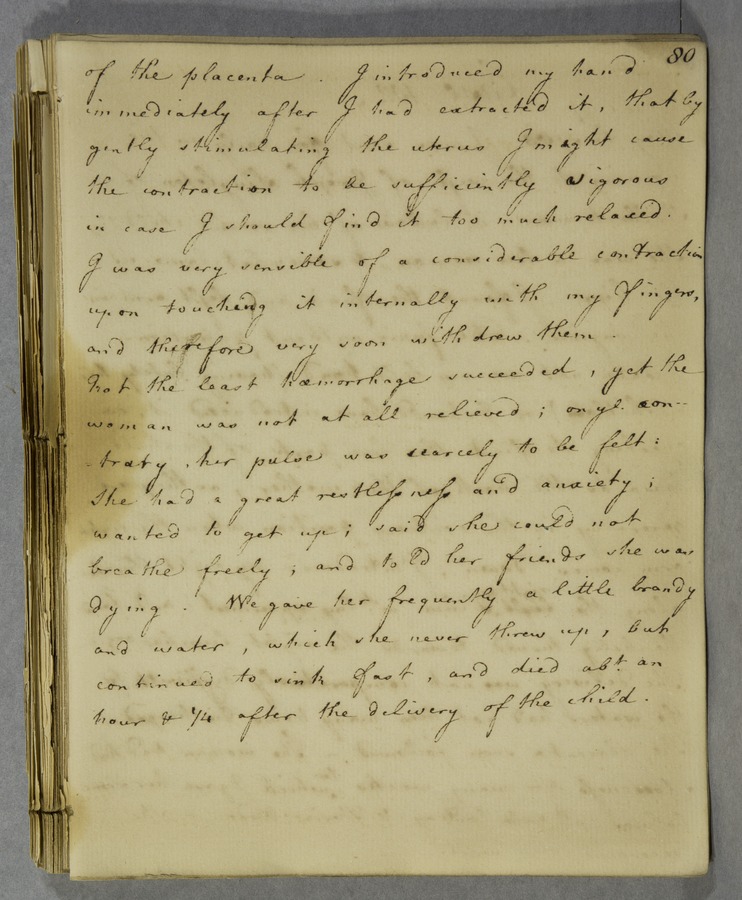 80
of the placenta. I introduced my hand
immediately after I had extracted it, that by
gently stimulating the uterus I might cause
the contraction to be sufficiently vigorous
in case I should find it too much relaxed.
I was very sensible of a considerable contraction
upon touching it internally with my fingers,
and therefore very soon withdrew them.
Not the least hæmorrhage succeeded, yet the
woman was not at all relieved; on ye. con-
-trary, her pulse was scarcely to be felt:
She had a great restlessness and anxiety;
wanted to get up; said she could not
breathe freely; and told her friends she was
dying. We gave her frequently a little brandy
and water, which she never threw up, but
continued to sink fast, and died abt. an
hour & 1/4 after the delivery of the child.